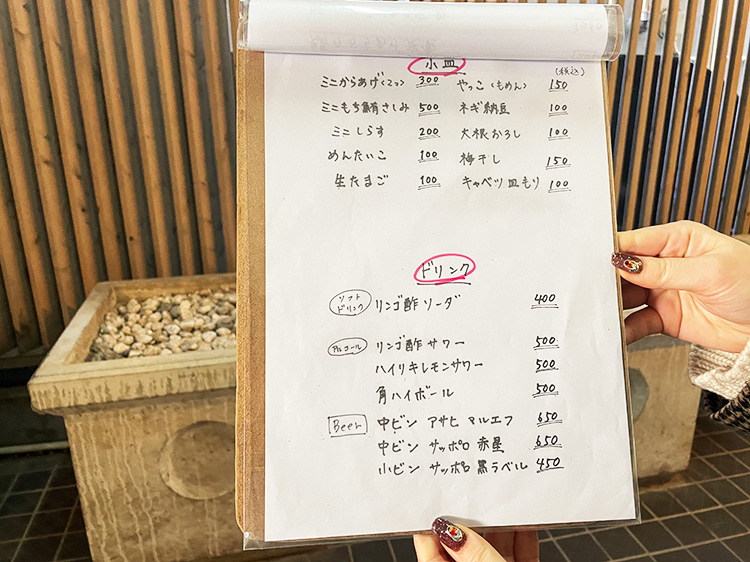 小皿
(税込)
ミニからあげ(2コ) 300 やっこ(もめん) 150
ミニもち鮪さしみ 500 ネギ納豆 100
ミニしらす 200 大根おろし 100
めんたいこ 100 梅干し 150
生たまご 100 キャベツ皿もり 100
ドリンク
ソフトドリンク リンゴ酢ソーダ 400
アルコール リンゴ酢サワー 500
ハイリキレモンサワー 500
角ハイボール 500
Beer 中ビン アサヒ マルエフ 650
中ビン サッポロ 赤星 650
小ビン サッポロ 黒ラベル 450